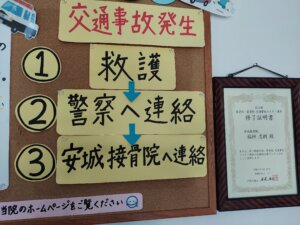 交通事故発生
① 救護
② 警察へ連絡
③ 安城接骨院へ連絡
当院のホームページをご覧ください
修了証明書